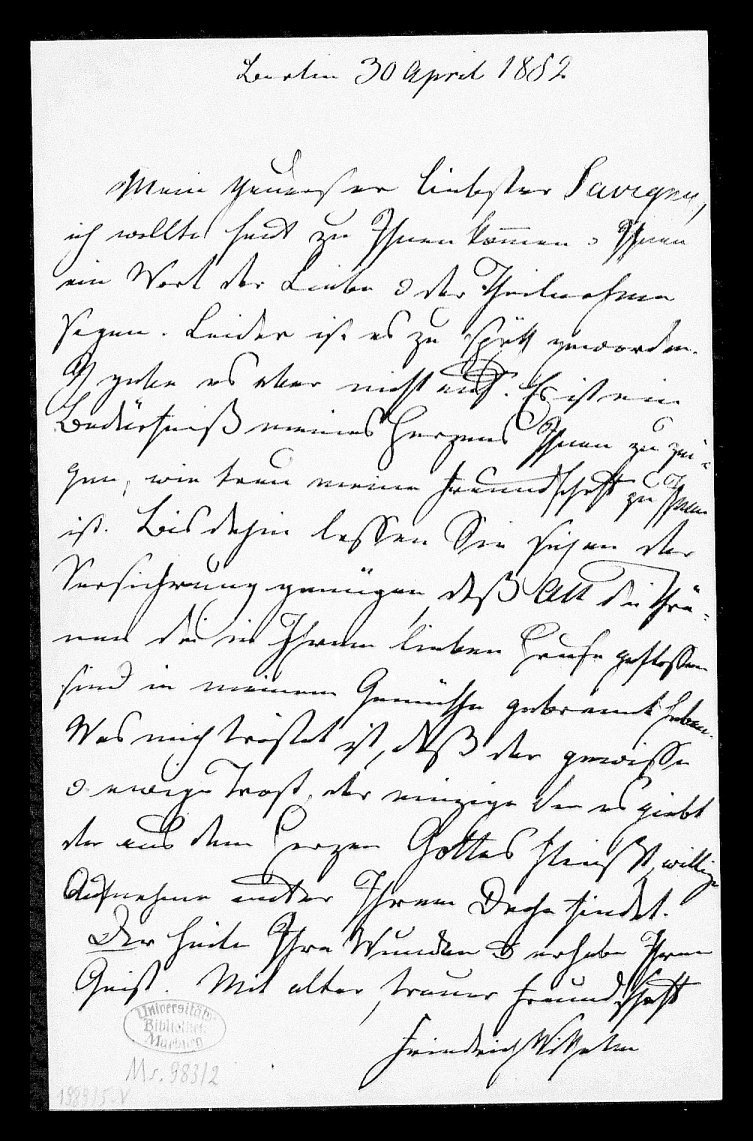 Berlin 30 April 1852
Mein theuerster liebster Savigny,
ich wollte heut zu Ihnen kommen & Ihnen
ein Wort der Liebe & der Theilnahme
sagen. Leider ist es zu spät geworden.
Ich gebe es aber nicht auf. Es ist ein
Bedürfniß meines Herzens Ihnen zu zei-
gen, wie treu meine Freundschaft zu Ihnen
ist. Bis dahin lassen Sie sich an der
Versichrung genügen, daß All die Thrä-
nen die in Ihrem lieben Hause geflossen
sind in meinem Gemüthe gebrannt haben.
Was mich tröstet ist, daß der gewisse
& ewige Trost, der einzige den es giebt
der aus dem Herzen Gottes fließt, willige
Aufnahme unter Ihrem Dache findet.
Der heile Ihre Wunden & erhebe Ihren
Geist. Mit alter, treuer Freundschaft
Friedrich Wilhelm
Universitäts
Bibliothek
Marburg
Ms. 983/2